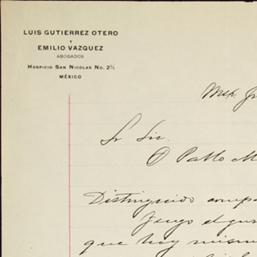 LUIS GUTIERREZ OTERO
Y
EMILIO VAZQUEZ
ABOGADOS
HOSPICIO SAN NICOLAS NO. 2½
MÉXICO
Mex
Sr Lic.
D Pablo M
Distinguido
Tengo el
que hoy mismo